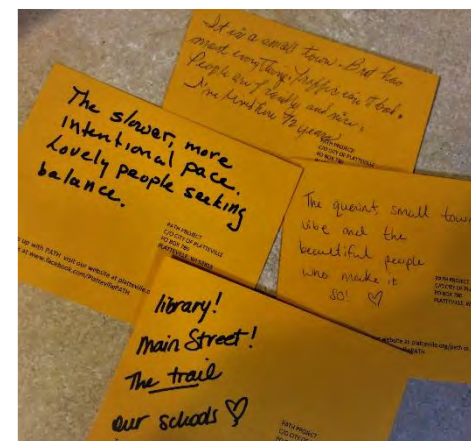 It is a small town - But has
most everything. Traffic isn't bad.
People are friendly and nice.
I've lived here 72 years!
PATH PROJECT
C/O CITY OF PLATTEVILLE
PO BOX 780
The slower, more
intentional pace.
Lovely people seeking
balance.
PATH PROJECT
C/O CITY OF PLATTEVILLE
PO BOX 780
PLATTEVILLE, WI 53818
up with PATH visit our website at platteville.o
at www.facebook.com/PlattevillePATH
The queint, small town
vibe and the
beautiful people
who make it
SO! ♡
PATH PROJECT
C/O CITY OF
PO BOX 780
PLATTEVILLE
website at platteville.org/path or
llePATH
library!
Main Street!
The trail
our schools ♡
PATH PROJECT
C/O CITY OF
PO BOX